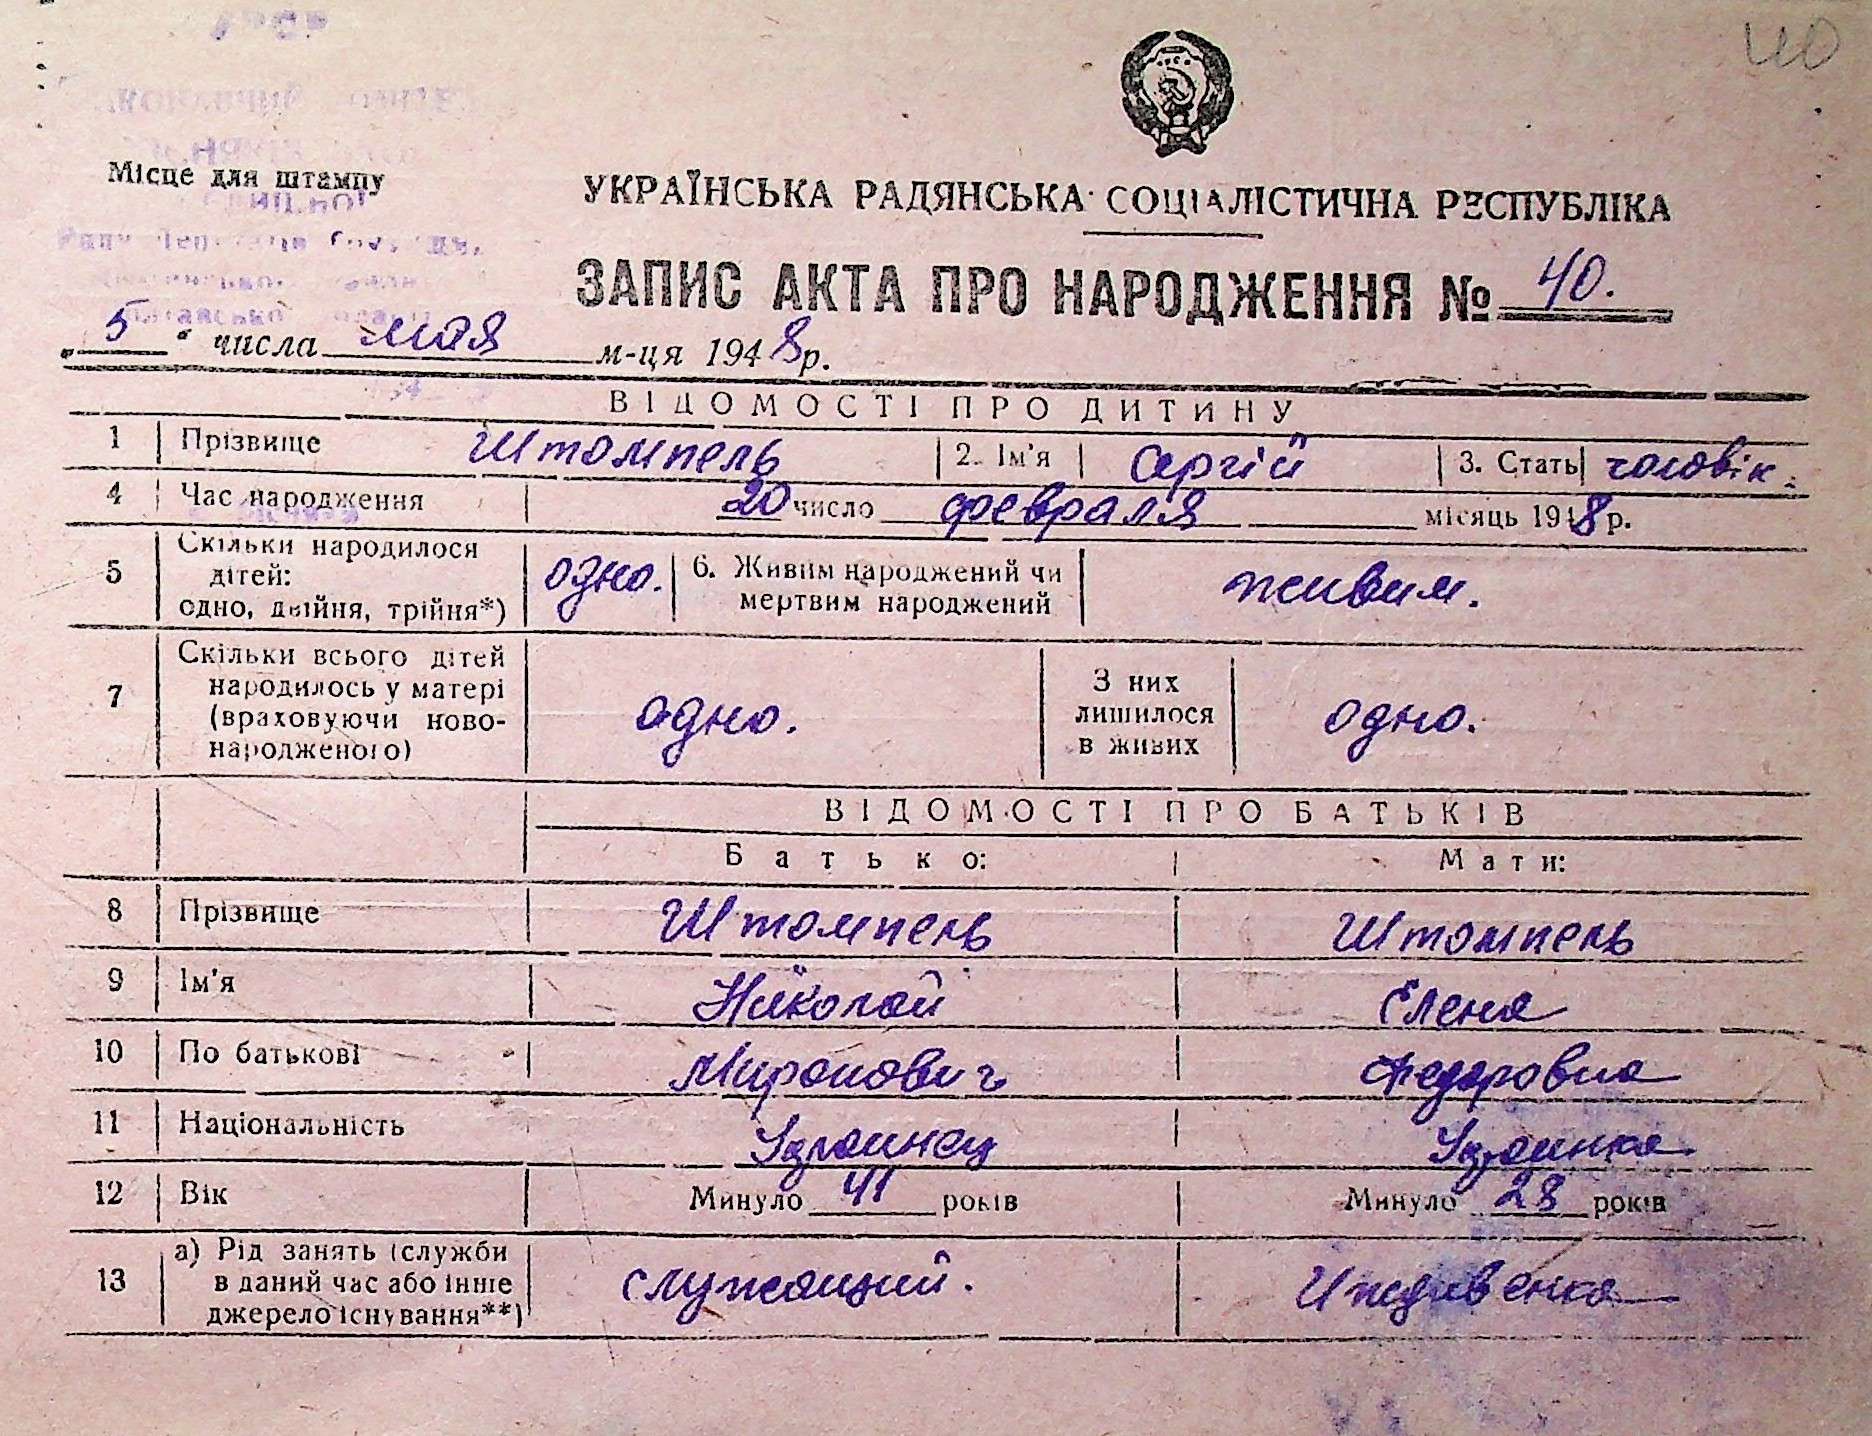 40
Місце для штампу
УКРАЇНСЬКА РАДЯНСЬКА СОЦІАЛІСТИЧНА РЕСПУБЛІКА
ЗАПИС АКТА ПРО НАРОДЖЕННЯ № 40.
„5“ числа мая м-ця 1948 р.
ВІДОМОСТІ ПРО ДИТИНУ
1 Прізвище Штомпель 2. Ім'я Сергій 3. Стать чоловік.
4 Час народження 20 число февраля місяць 1948 р.
5 Скільки народилося дітей: одно, двійня, трійня*) одно. 6. Живим народжений чи мертвим народжений живим.
7 Скільки всього дітей народилось у матері (враховуючи новонародженого) одно. З них лишилося в живих одно.
ВІДОМОСТІ ПРО БАТЬКІВ
Батько: Мати:
8 Прізвище Штомпель Штомпель
9 Ім'я Николай Елена
10 По батькові Миронович Федоровна
11 Національність Украинец Украинка
12 Вік Минуло 41 років Минуло 28 років
13 а) Рід занять (служби в даний час або інше джерело існування**) служащий. Иждивенка